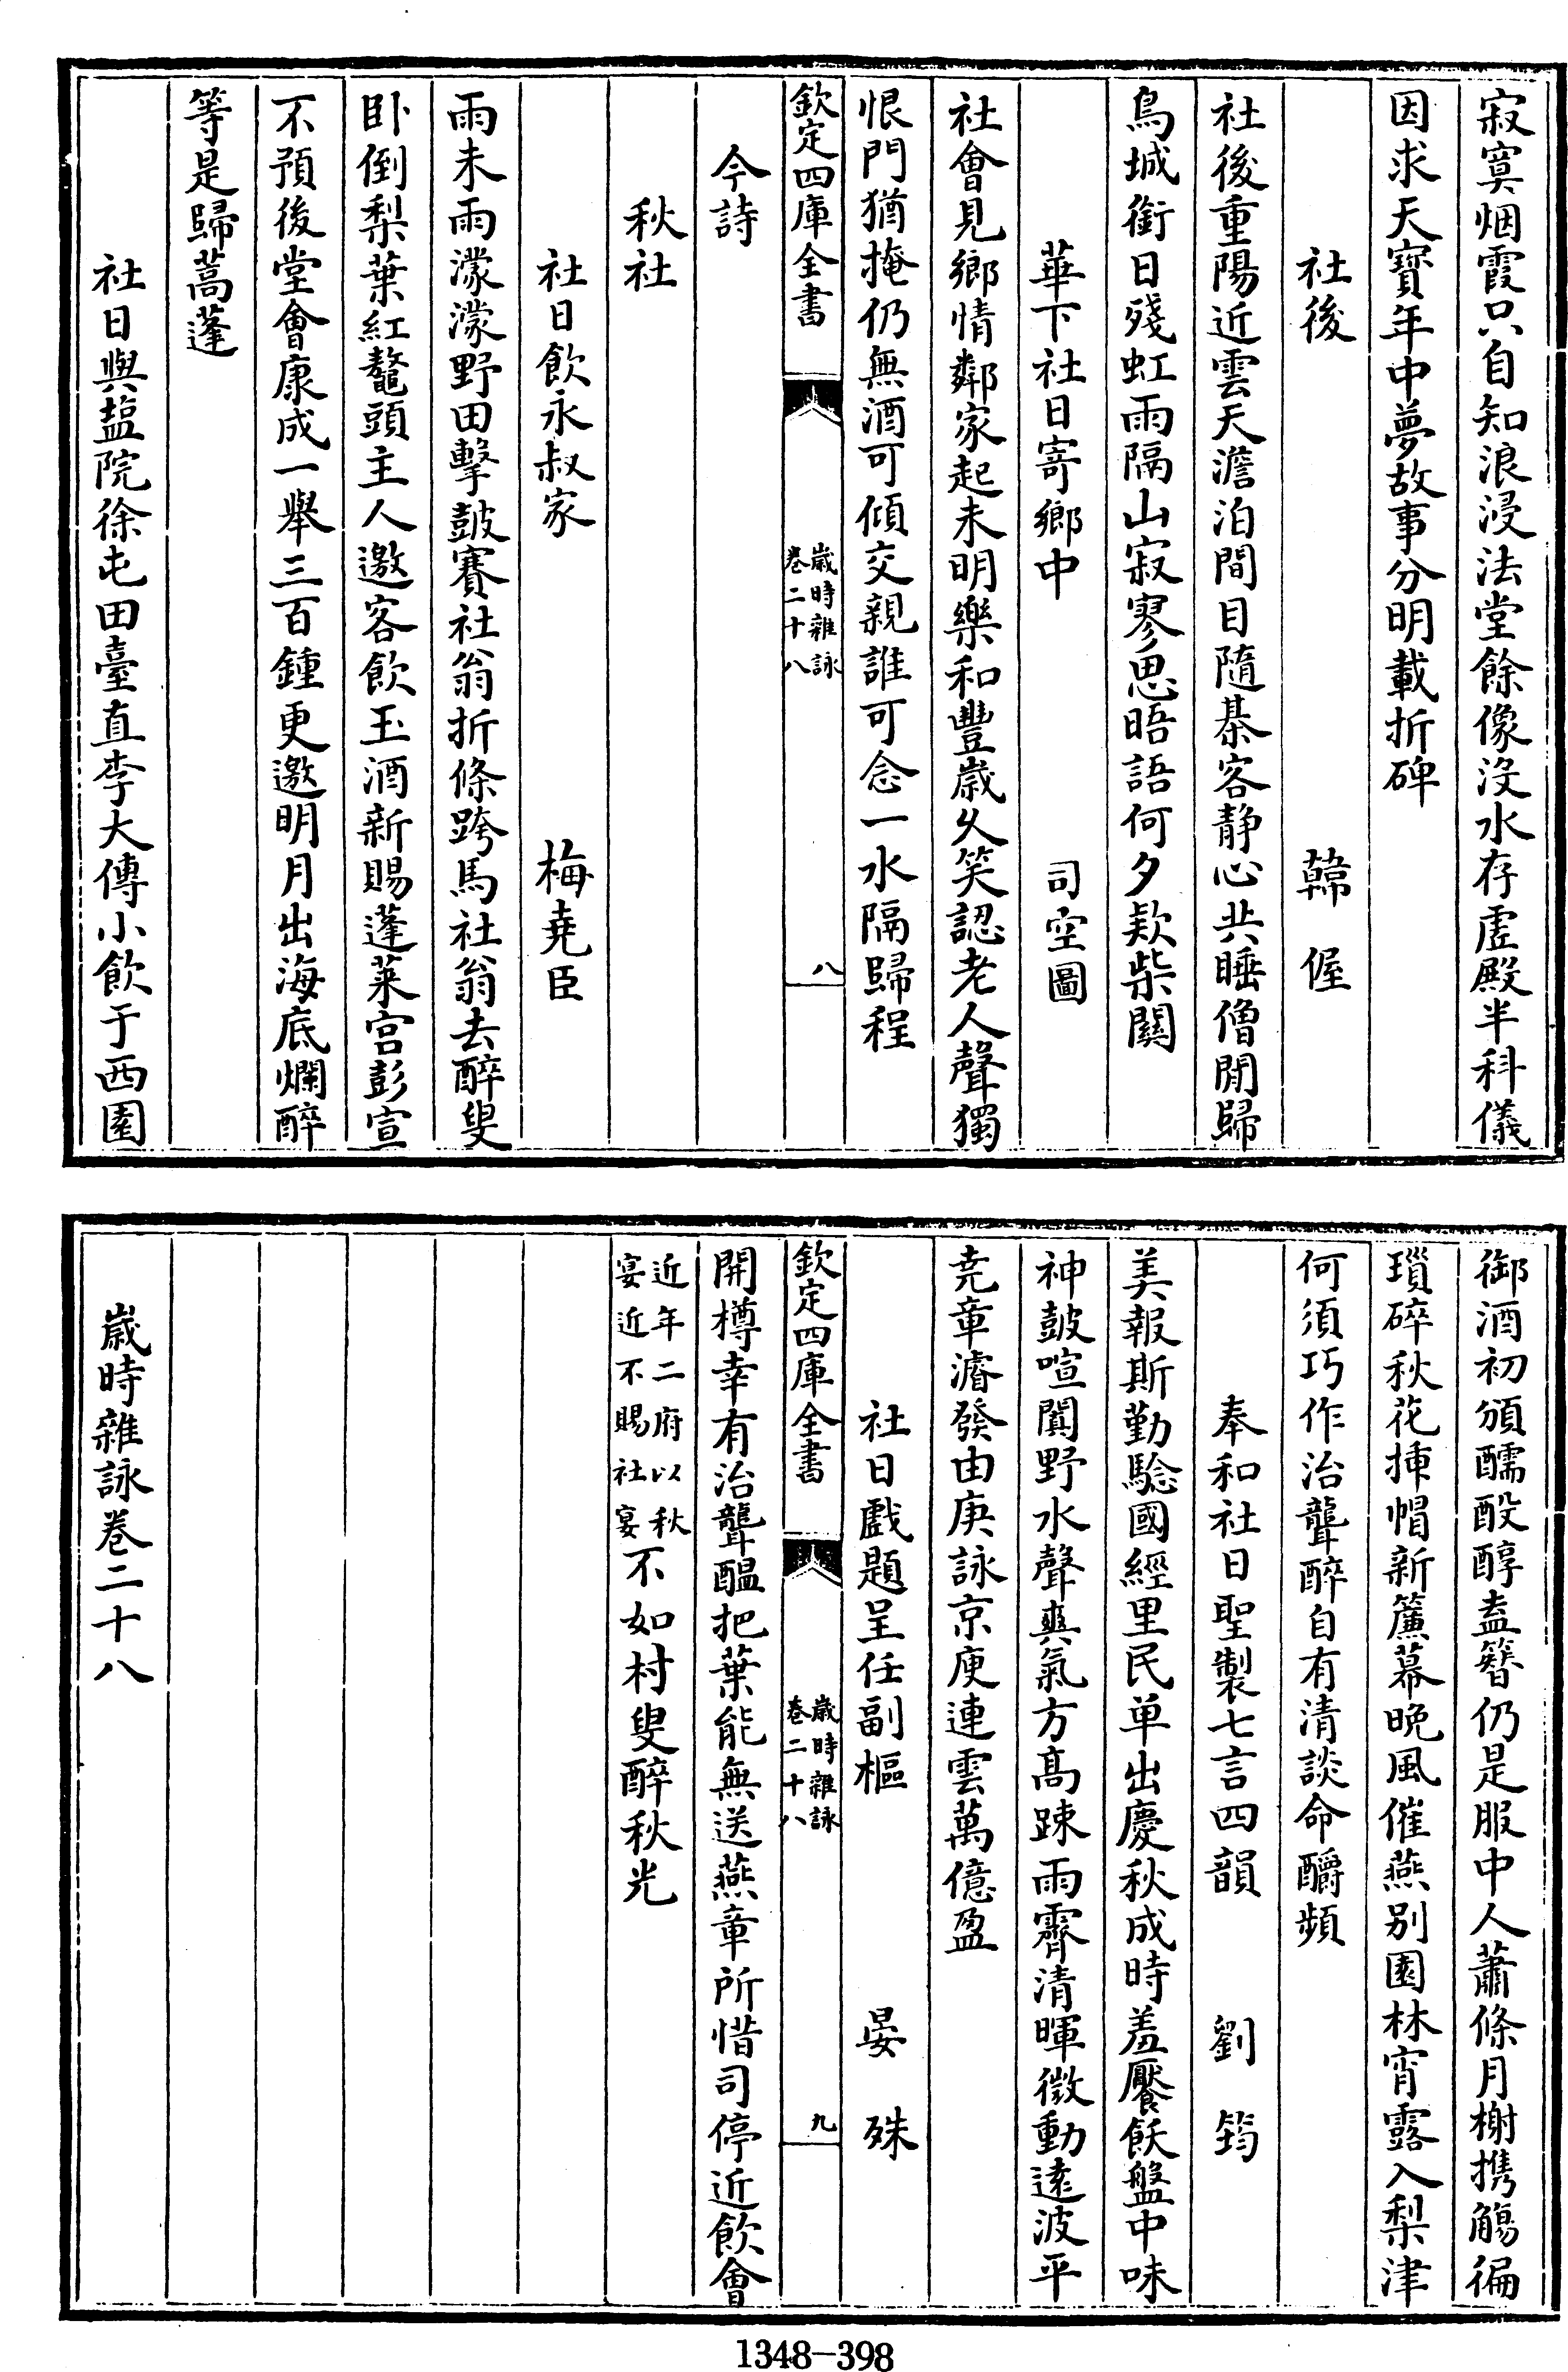 寂寞烟霞只自知浪浸法堂餘像沒水存虛殿半科儀
因求天寳年中夢故事分明載折碑
社後 韓偓
社後重陽近雲天澹泊間目隨棊客静心共睡僧閒歸
鳥城銜日殘虹雨隔山寂寥思晤語何夕欵柴關
華下社日寄鄉中 司空圖
社會見鄉情鄰家起未明樂和豐歲久笑認老人聲獨
恨門猶掩仍無酒可傾交親誰可念一水隔歸程
欽定四庫全書 歲時雜詠 卷二十八 八
今詩
秋社
社日飲永叔家 梅堯臣
雨未雨濛濛野田擊鼓賽社翁折條跨馬社翁去醉叟
卧倒梨葉紅鼇頭主人邀客飲玉酒新賜蓬萊宫彭宣
不預後堂會康成一舉三百鍾更邀明月出海底爛醉
等是歸蒿蓬
社日與塩院徐屯田臺直李大傅小飲于西園
御酒初頒醹酘醇盍簪仍是服中人蕭條月榭携觴徧
瑣碎秋花揷帽新簾幕晚風催燕别園林宵露入梨津
何須巧作治聾醉自有清談命釂頻
奉和社日聖製七言四韻 劉筠
美報斯勤騐國經里民单出慶秋成時羞饜飫盤中味
神鼓喧闐野水聲爽氣方髙踈雨霽清暉微動遠波平
堯章濬發由庚詠京庾連雲萬億盈
社日戲題呈任副樞 晏殊
欽定四庫全書 歲時雜詠 卷二十八 九
開樽幸有治聾醖把葉能無送燕章所惜司停近飲會
近年二府以秋宴近不賜社宴不如村叟醉秋光
歲時雜詠卷二十八
1348-398